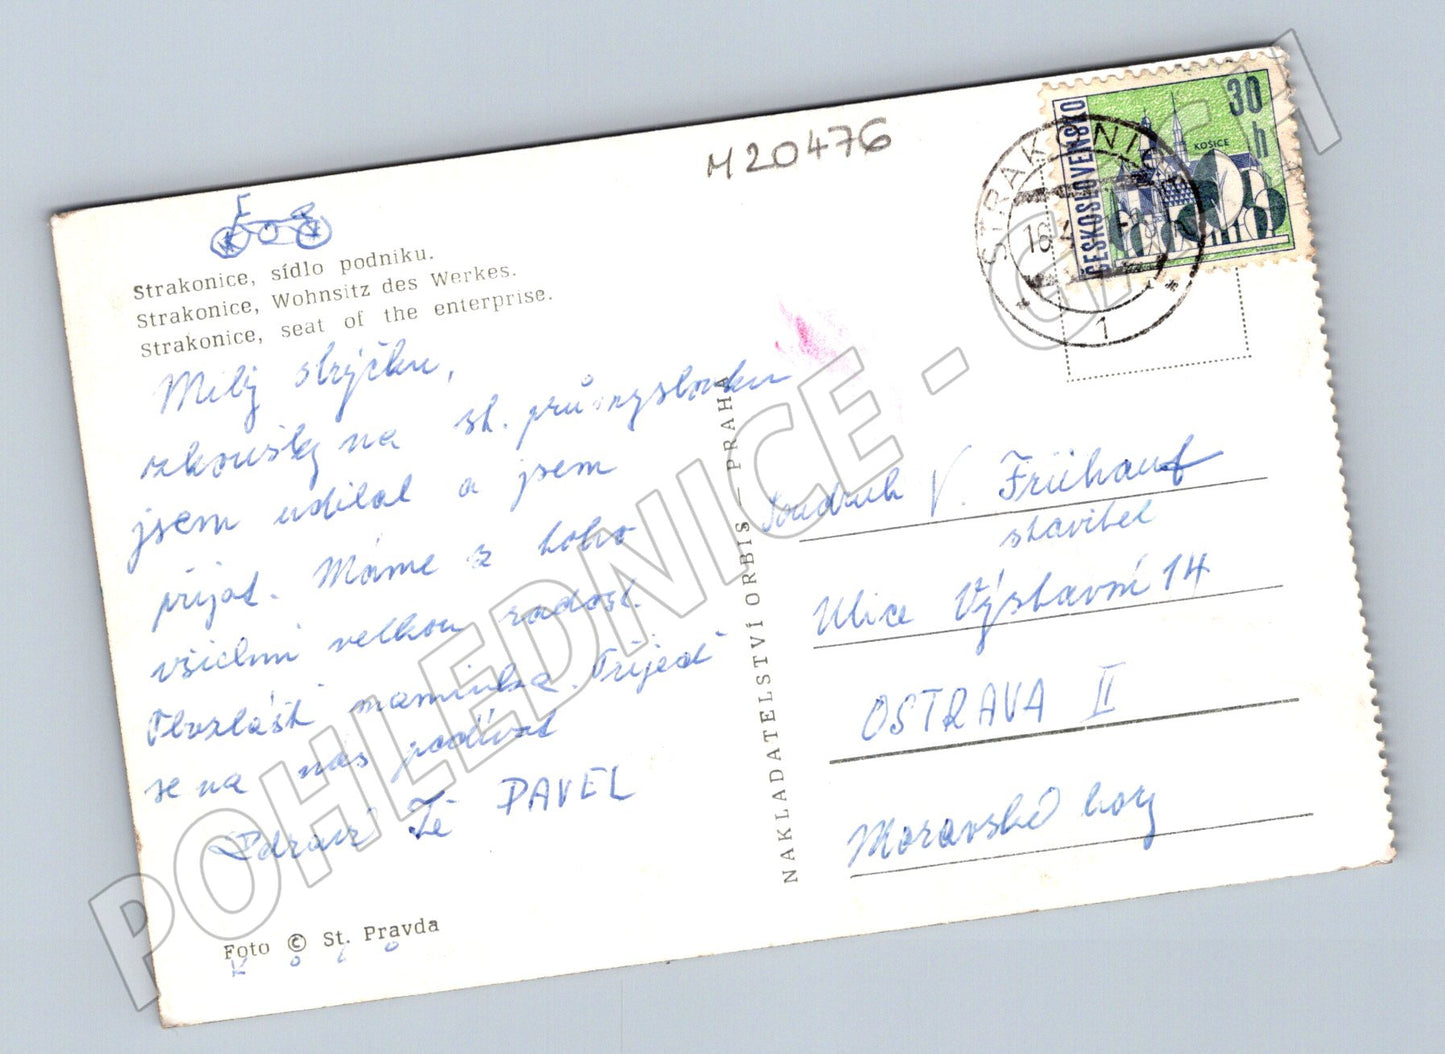 M 20476
ČESKOSLOVENSKO
30
h
KOŠICE
STRAKONICE
1
Strakonice, sídlo podniku.
Strakonice, Wohnsitz des Werkes.
Strakonice, seat of the enterprise.
Milý strýčku,
zkoušky na st. průmyslovku
jsem udělal a jsem
přijat. Máme z toho
všichni velkou radost.
Obzlášt maminka. Přijeď
se na nás podívat
Zdraví Tě PAVEL
Foto © St. Pravda
NAKLADATELSTVÍ ORBIS – PRAHA
Soudruh V. Frühauf
stavitel
Ulice Výstavní 14
OSTRAVA II
Moravské hory
POHLEDNICE - G